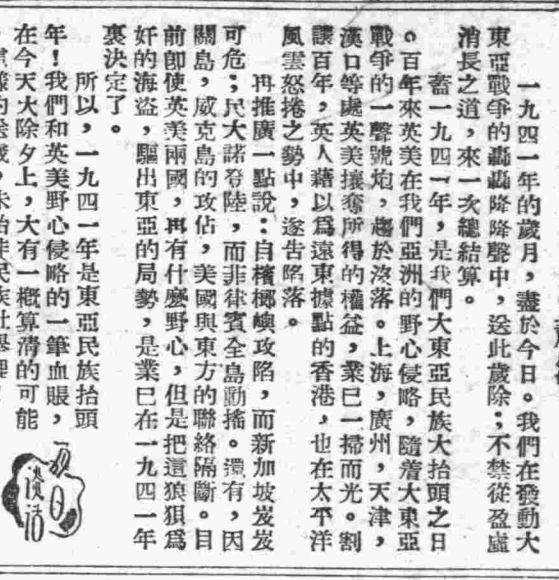 一九四一年的歲月，盡於今日。我們在發動大
東亞戰爭的轟轟隆隆聲中，送此歲除；不禁從盈虛
消長之道，來一次總結算。
蓄一九四一年，是我們大東亞民族大抬頭之日
。百年來英美在我們亞洲的野心侵略，隨着大東亞
戰爭的一聲號炮，趨於沒落。上海，廣州，天津，
漢口等處英美攘奪所得的權益，業已一掃而光。割
讓百年，英人藉以為遠東據點的香港，也在太平洋
風雲怒捲之勢中，遂告陷落。
再推廣一點說：自檳榔嶼攻陷，而新加坡岌岌
可危；民大諾登陸，而菲律賓全島動搖。還有，因
關島，威克島的攻佔，美國與東方的聯絡隔斷。目
前即使英美兩國，再有什麼野心，但是把這狼狽為
奸的海盜，驅出東亞的局勢，是業已在一九四一年
裏決定了。
所以，一九四一年是東亞民族抬頭
年！我們和英美野心侵略的一筆血賬，
在今天大除夕上，大有一概算清的可能